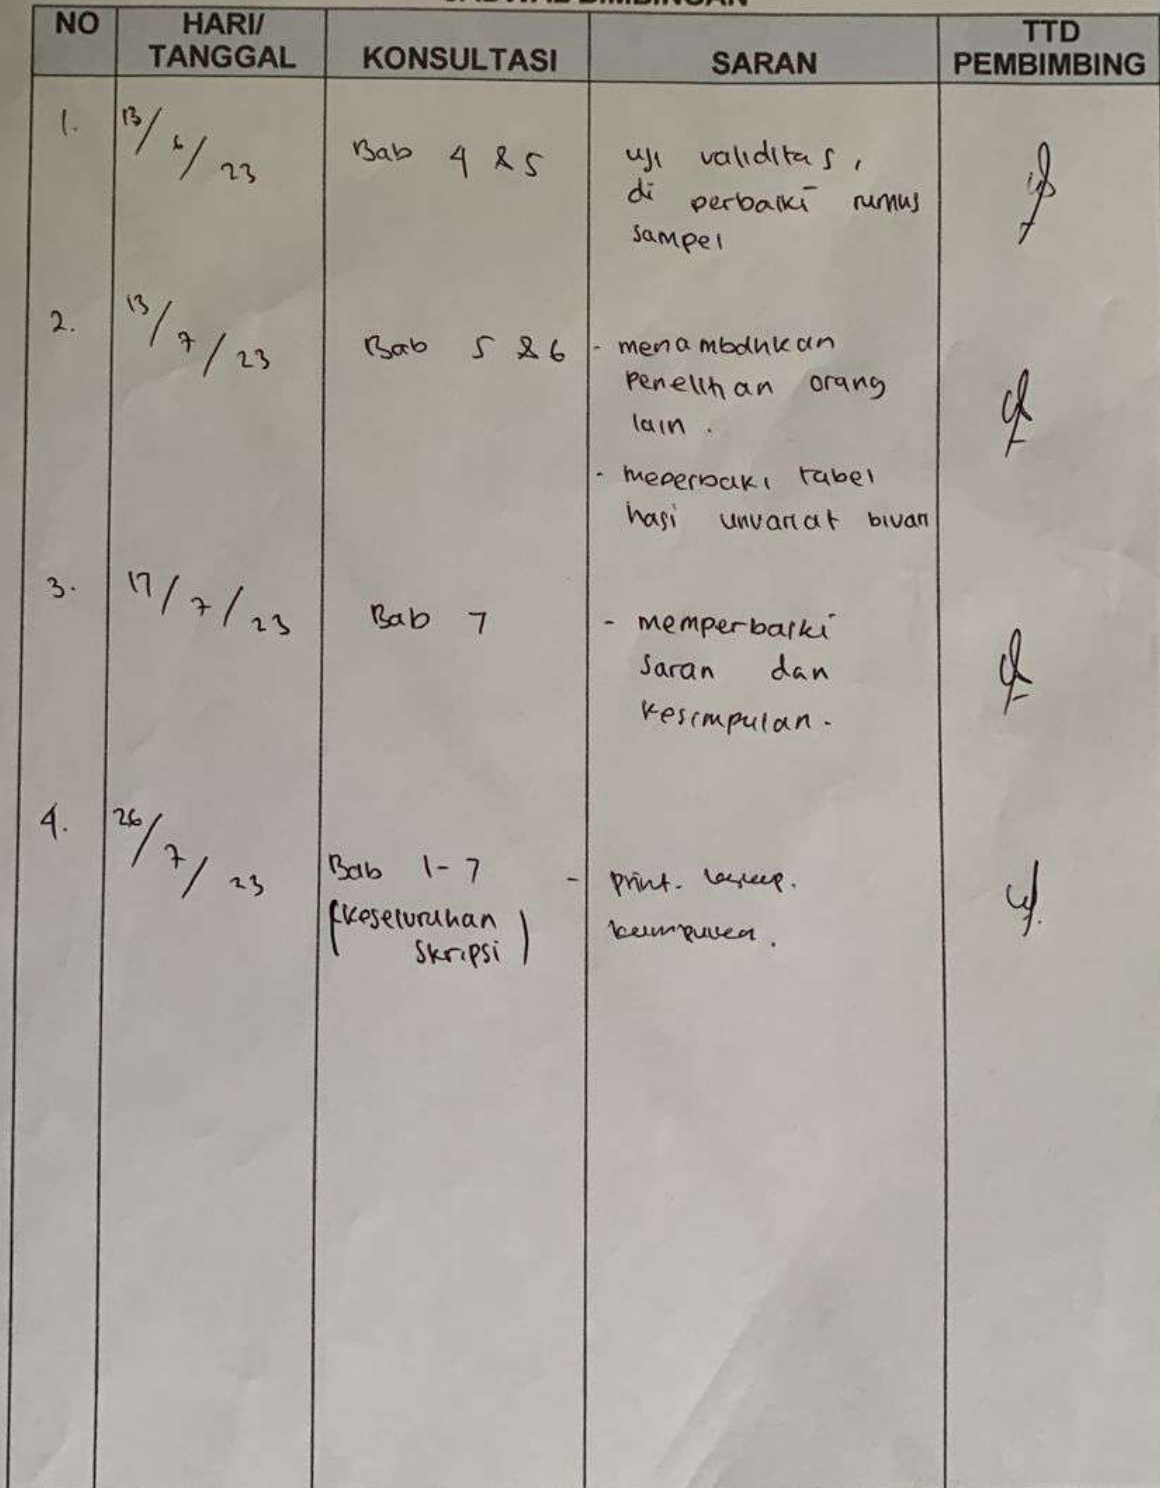 JADWAL BIMBINGAN
NO HARI/ TANGGAL KONSULTASI SARAN TTD PEMBIMBING
1. 13/6/23 Bab 4 & 5 uji validitas,
di perbaiki rumus
sampel
2. 13/7/23 Bab 5 & 6 - menambahkan
penelitian orang
lain.
- meperbaki tabel
hasi unvariat bivari
3. 17/7/23 Bab 7 - memperbaiki
saran dan
kesimpulan.
4. 26/7/23 Bab 1-7 - print.
(Keseluruhan
Skripsi)